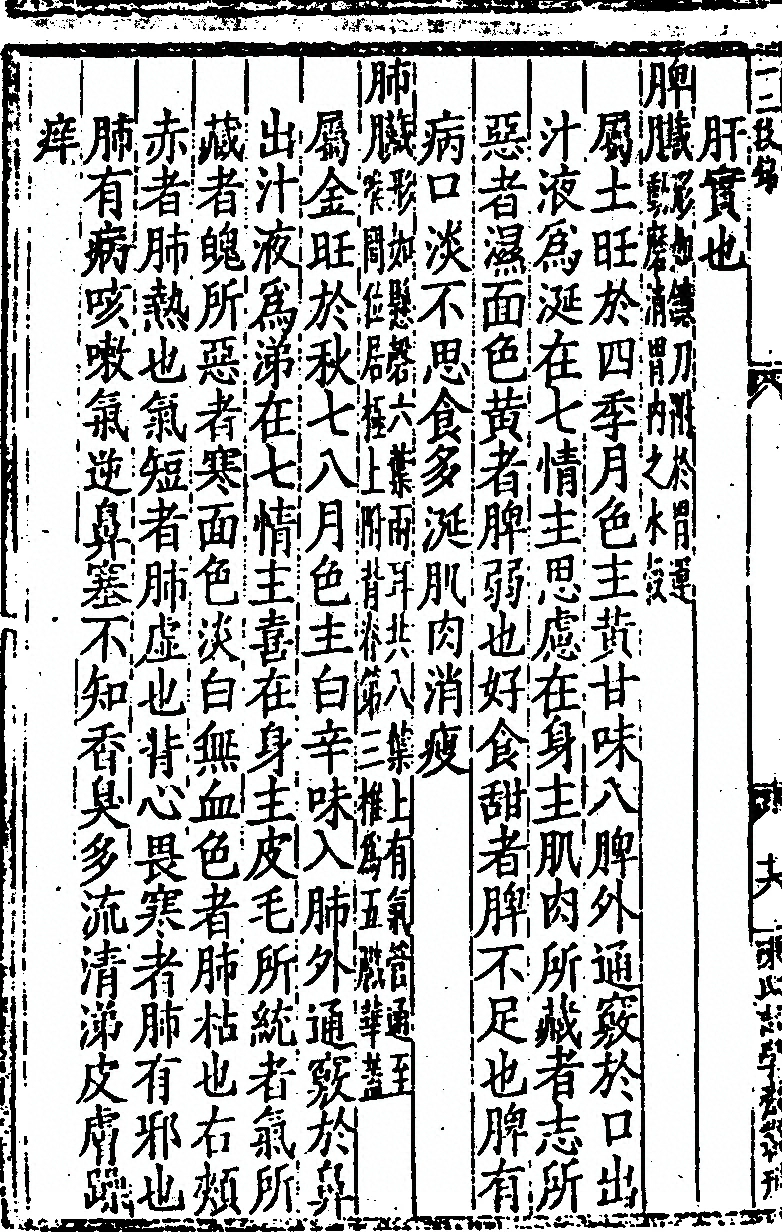 肝實也
脾臟形如鐮刀附於胃運
動磨消胃內之水穀
屬土旺於四季月色主黃甘味入脾外通竅於口出
汁液為涎在七情主思慮在身主肌肉所藏者志所
惡者濕面色黃者脾弱也好食甜者脾不足也脾有
病口淡不思食多涎肌肉消瘦
肺臟形如懸磬六葉兩耳共八葉上有氣管通至
喉間位居極上附背脊第三椎為五臟華蓋
屬金旺於秋七八月色主白辛味入肺外通竅於鼻
出汁液為涕在七情主喜在身主皮毛所統者氣所
藏者魄所惡者寒面色淡白無血色者肺枯也右頰
赤者肺熱也氣短者肺虛也背心畏寒者肺有邪也
肺有病咳嗽氣逆鼻塞不知香臭多流清涕皮膚躁
痒